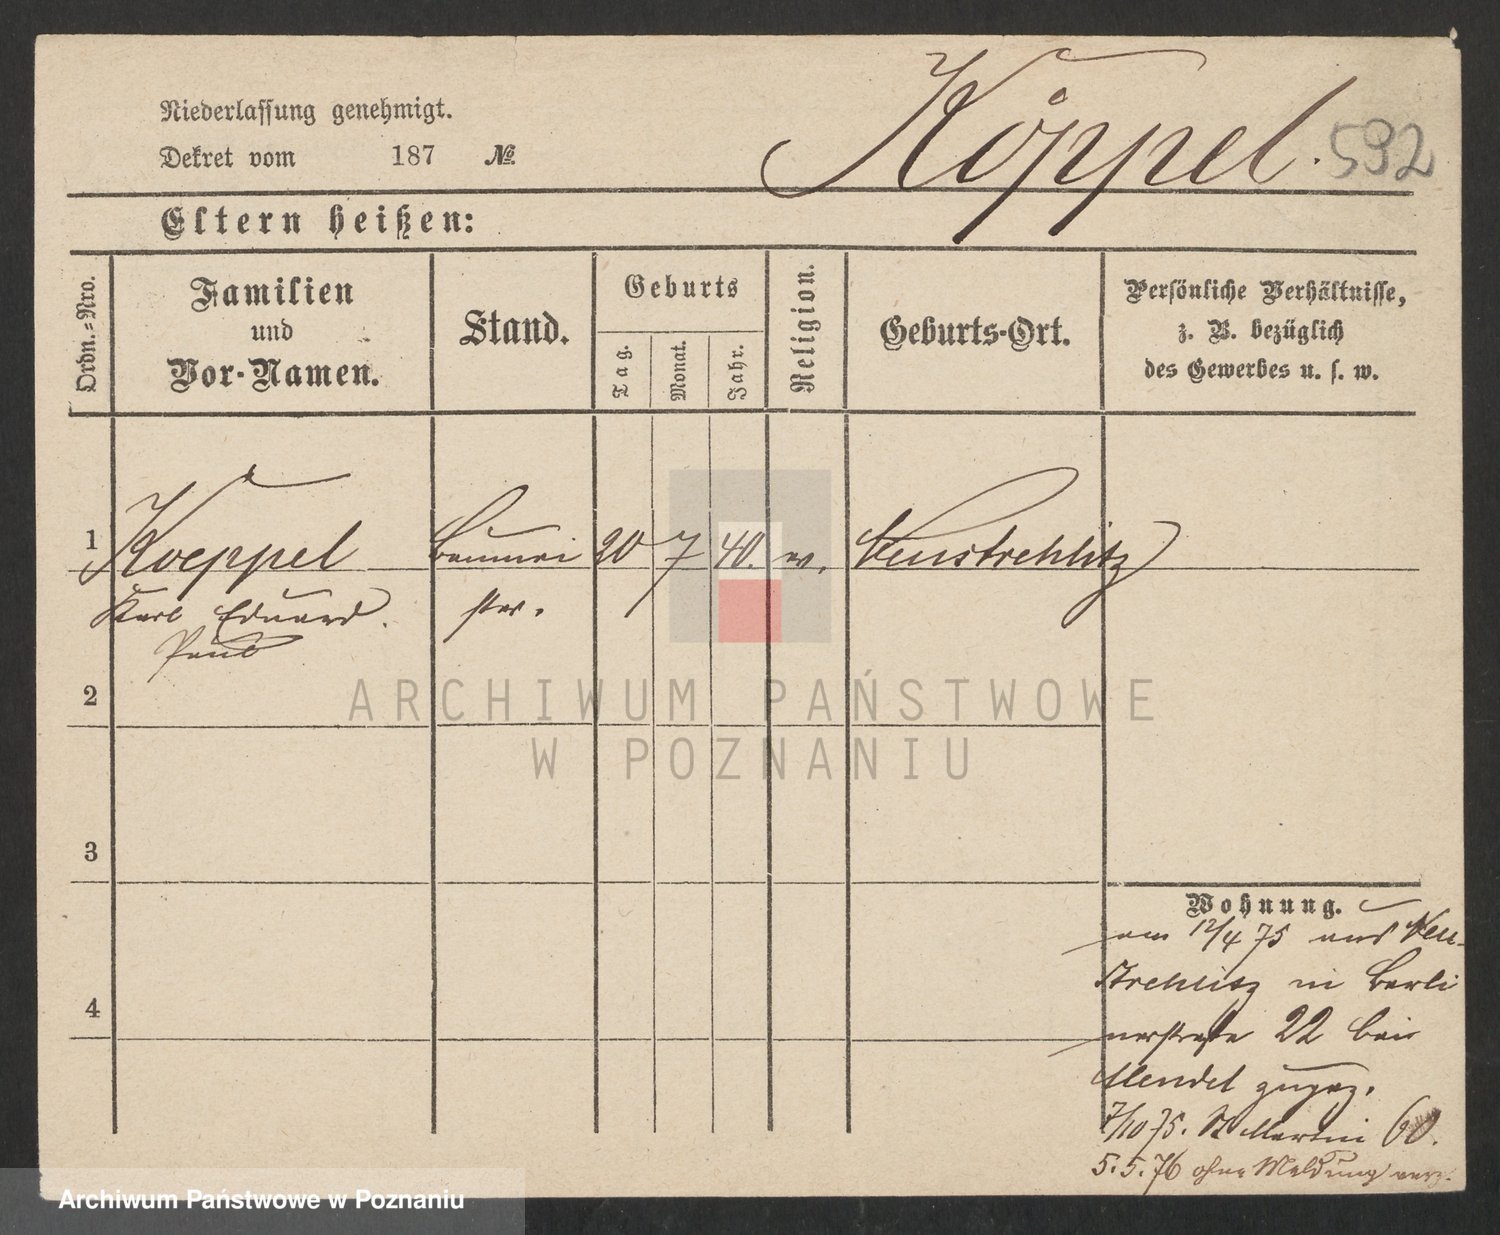 Niederlassung genehmigt.
Dekret vom 187 №
Köppel. 592
Eltern heißen:
Ordn.-Nro.
Familien und Vor-Namen.
Stand.
Geburts
Tag.
Monat.
Jahr.
Religion.
Geburts-Ort.
Persönliche Verhältnisse,
z. B. bezüglich
des Gewerbes u. s. w.
1 Koeppel Baumei 20 7 40. Neustrehlitz
Karl Eduard. ster.
Paul
2
ARCHIWUM PAŃSTWOWE
W POZNANIU
3
4
Wohnung.
am 12/4 75 aus Neu-
strehlitz in Berli
nerstraße 22 bei
Mendel zugez.
7/10 75. St Martin 60.
5.5.76 ohne Meldung verz.
Archiwum Państwowe w Poznaniu